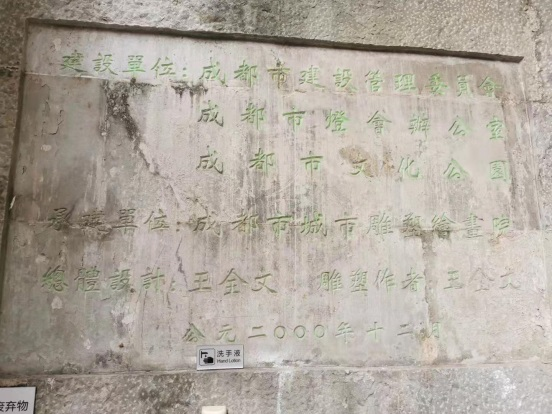 建設單位：成都市建設管理委員會
成都市燈會辦公室
成都市文化公園
承建單位：成都市城市雕塑繪畫院
總體設計：王全文 雕塑作者 王全文
公元二〇〇〇年十二月
洗手液
Hand Lotion
废弃物